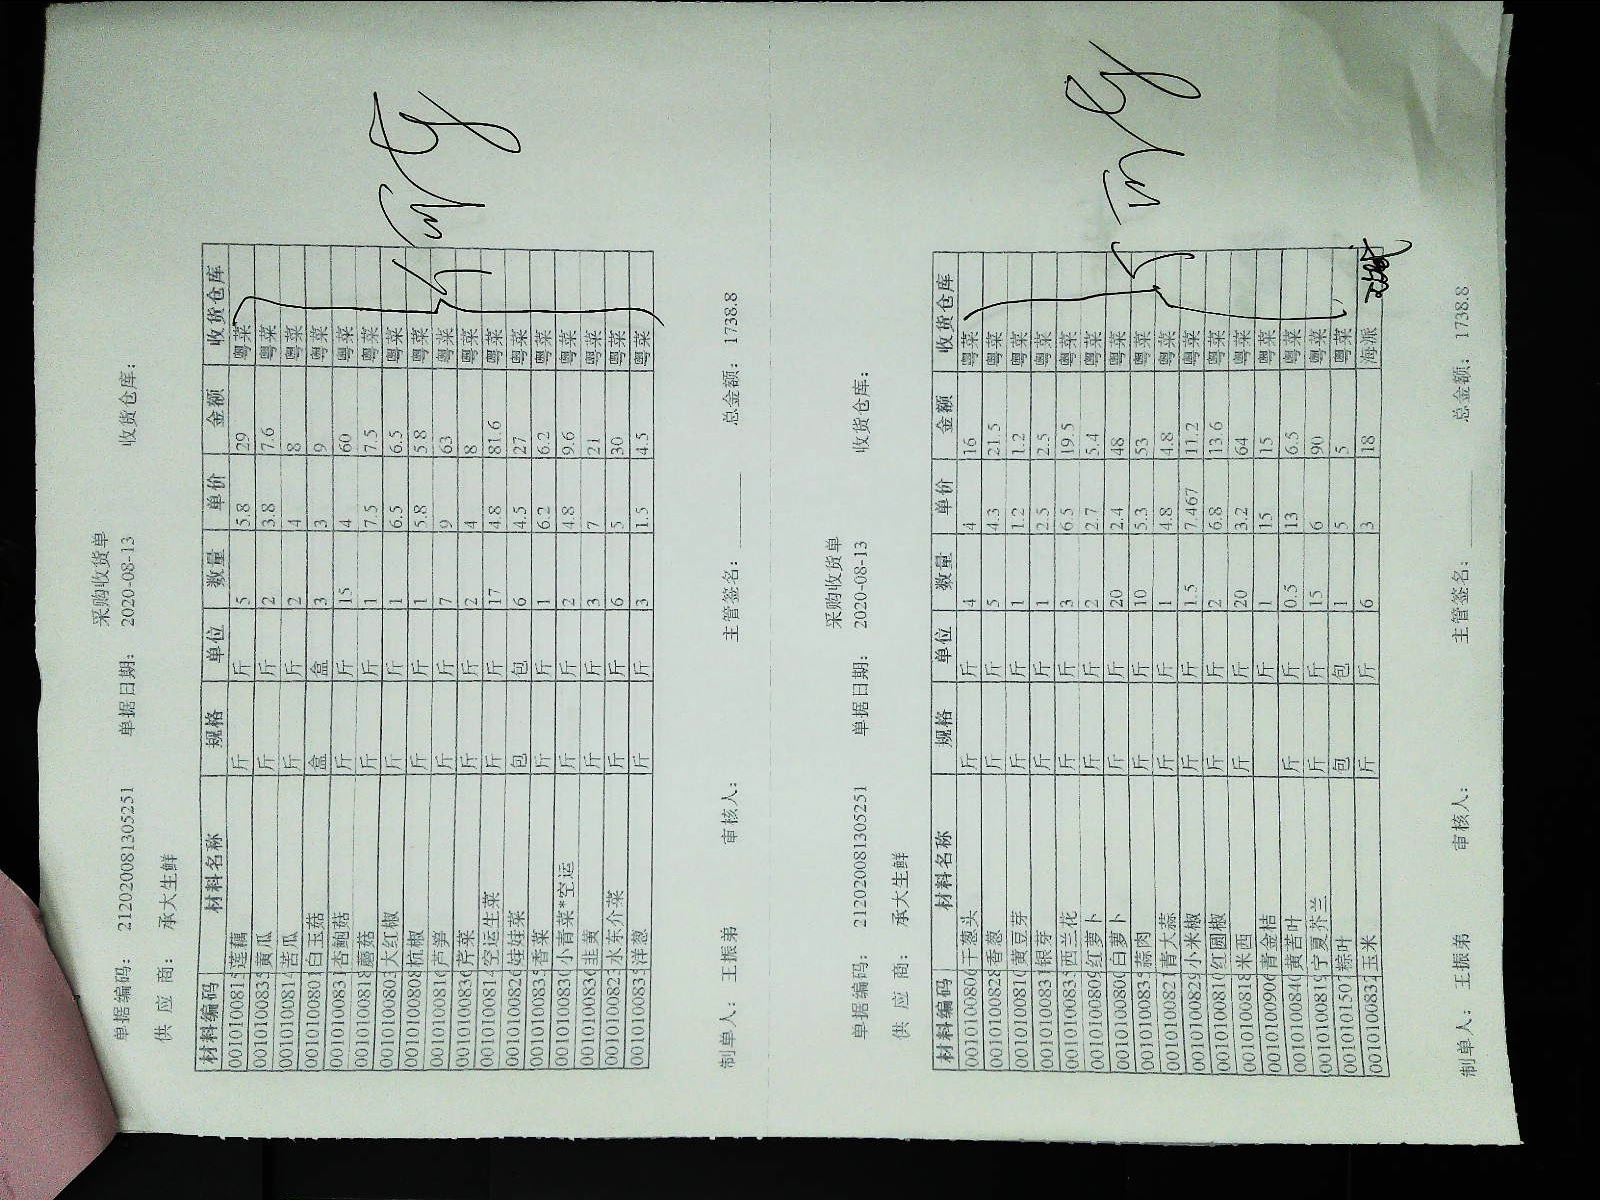 采购收货单
单据编码: 21202008​1305251 单据日期: 2020-08-13 收货仓库:
供 应 商: 承大生鲜
材料编码 材料名称 规格 单位 数量 单价 金额 收货仓库
0010100815 莲藕 斤 斤 5 5.8 29 粤菜
0010100835 黄瓜 斤 斤 2 3.8 7.6 粤菜
0010100814 苦瓜 斤 斤 2 4 8 粤菜
0010100801 白玉菇 盒 盒 3 3 9 粤菜
0010100831 杏鲍菇 斤 斤 15 4 60 粤菜
0010100818 蘑菇 斤 斤 1 7.5 7.5 粤菜
0010100803 大红椒 斤 斤 1 6.5 6.5 粤菜
0010100808 杭椒 斤 斤 1 5.8 5.8 粤菜
0010100816 芦笋 斤 斤 7 9 63 粤菜
0010100836 芹菜 斤 斤 2 4 8 粤菜
0010100814 空运生菜 斤 斤 17 4.8 81.6 粤菜
0010100826 娃娃菜 包 包 6 4.5 27 粤菜
0010100835 香菜 斤 斤 1 6.2 6.2 粤菜
0010100830 小青菜*空运 斤 斤 2 4.8 9.6 粤菜
0010100836 韭黄 斤 斤 3 7 21 粤菜
0010100823 水东介菜 斤 斤 6 5 30 粤菜
0010100835 洋葱 斤 斤 3 1.5 4.5 粤菜
制单人: 王振弟 审核人: 主管签名: 总金额: 1738.8
采购收货单
单据编码: 212020081305251 单据日期: 2020-08-13 收货仓库:
供 应 商: 承大生鲜
材料编码 材料名称 规格 单位 数量 单价 金额 收货仓库
0010100806 干葱头 斤 斤 4 4 16 粤菜
0010100828 香葱 斤 斤 5 4.3 21.5 粤菜
0010100810 黄豆芽 斤 斤 1 1.2 1.2 粤菜
0010100831 银芽 斤 斤 1 2.5 2.5 粤菜
0010100835 西兰花 斤 斤 3 6.5 19.5 粤菜
0010100809 红萝卜 斤 斤 2 2.7 5.4 粤菜
0010100800 白萝卜 斤 斤 20 2.4 48 粤菜
0010100835 蒜肉 斤 斤 10 5.3 53 粤菜
0010100821 青大蒜 斤 斤 1 4.8 4.8 粤菜
0010100829 小米椒 斤 斤 1.5 7.467 11.2 粤菜
0010100810 红圆椒 斤 斤 2 6.8 13.6 粤菜
0010100818 米西 斤 斤 20 3.2 64 粤菜
0010100906 青金桔 斤 1 15 15 粤菜
0010100840 黄苦叶 斤 斤 0.5 13 6.5 粤菜
0010100819 宁夏芥兰 斤 斤 15 6 90 粤菜
0010101507 粽叶 包 包 1 5 5 粤菜
0010100831 玉米 斤 斤 6 3 18 海派
制单人: 王振弟 审核人: 主管签名: 总金额: 1738.8